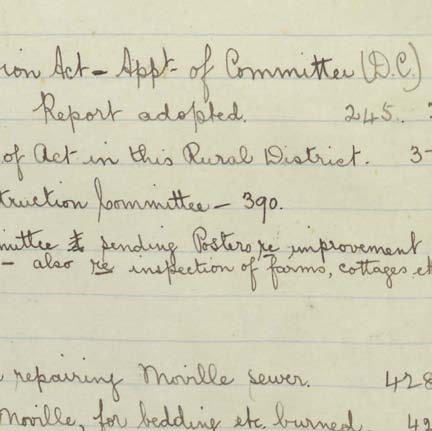 ion Act - Appt. of Committee (D.C.)
Report adopted. 245.
of Act in this Rural District. 3-
truction Committee - 390.
mittee sending Posters re improvement
- also re inspection of farms, cottages et
repairing Moville sewer. 428
Moville, for bedding etc. burned. 42